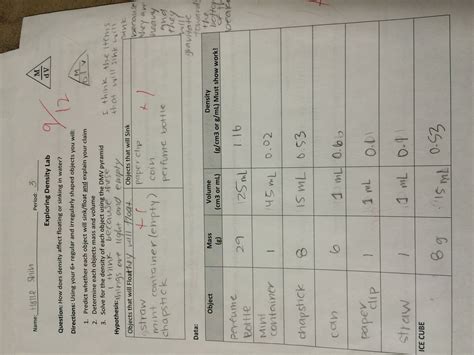 Name: Period: 3
M
dV
9/12
Exploring Density Lab
Question: How does density affect floating or sinking in water?
Directions: Using your 6+ regular and irregularly shaped objects you will:
1. Predict whether each object will sink/float and explain your claim
2. Determine each objects mass and volume
3. Solve for the density of each object using the DMV pyramid
Hypothesis: I think because these
things are light and empty
they will float.
I think the items
that will sink will
sink
because
they are
heavy
and
they
will
gravitate
towards
the
bottom
of the
beaker
Objects that will Float
Objects that will Sink
straw
mini container (empty)
chapstick
+1
paperclip
coin
perfume bottle
+1
Data:
Object
Mass
(g)
Volume
(cm3 or mL)
Density
(g/cm3 or g/mL) Must show work!
perfume bottle 29 25mL 1.16
Mini container 1 45mL 0.02
chapstick 8 15mL 0.53
6 mL
paper clip 1 1 mL
straw 1 1 mL
ICE CUBE 8g 15mL 0.53